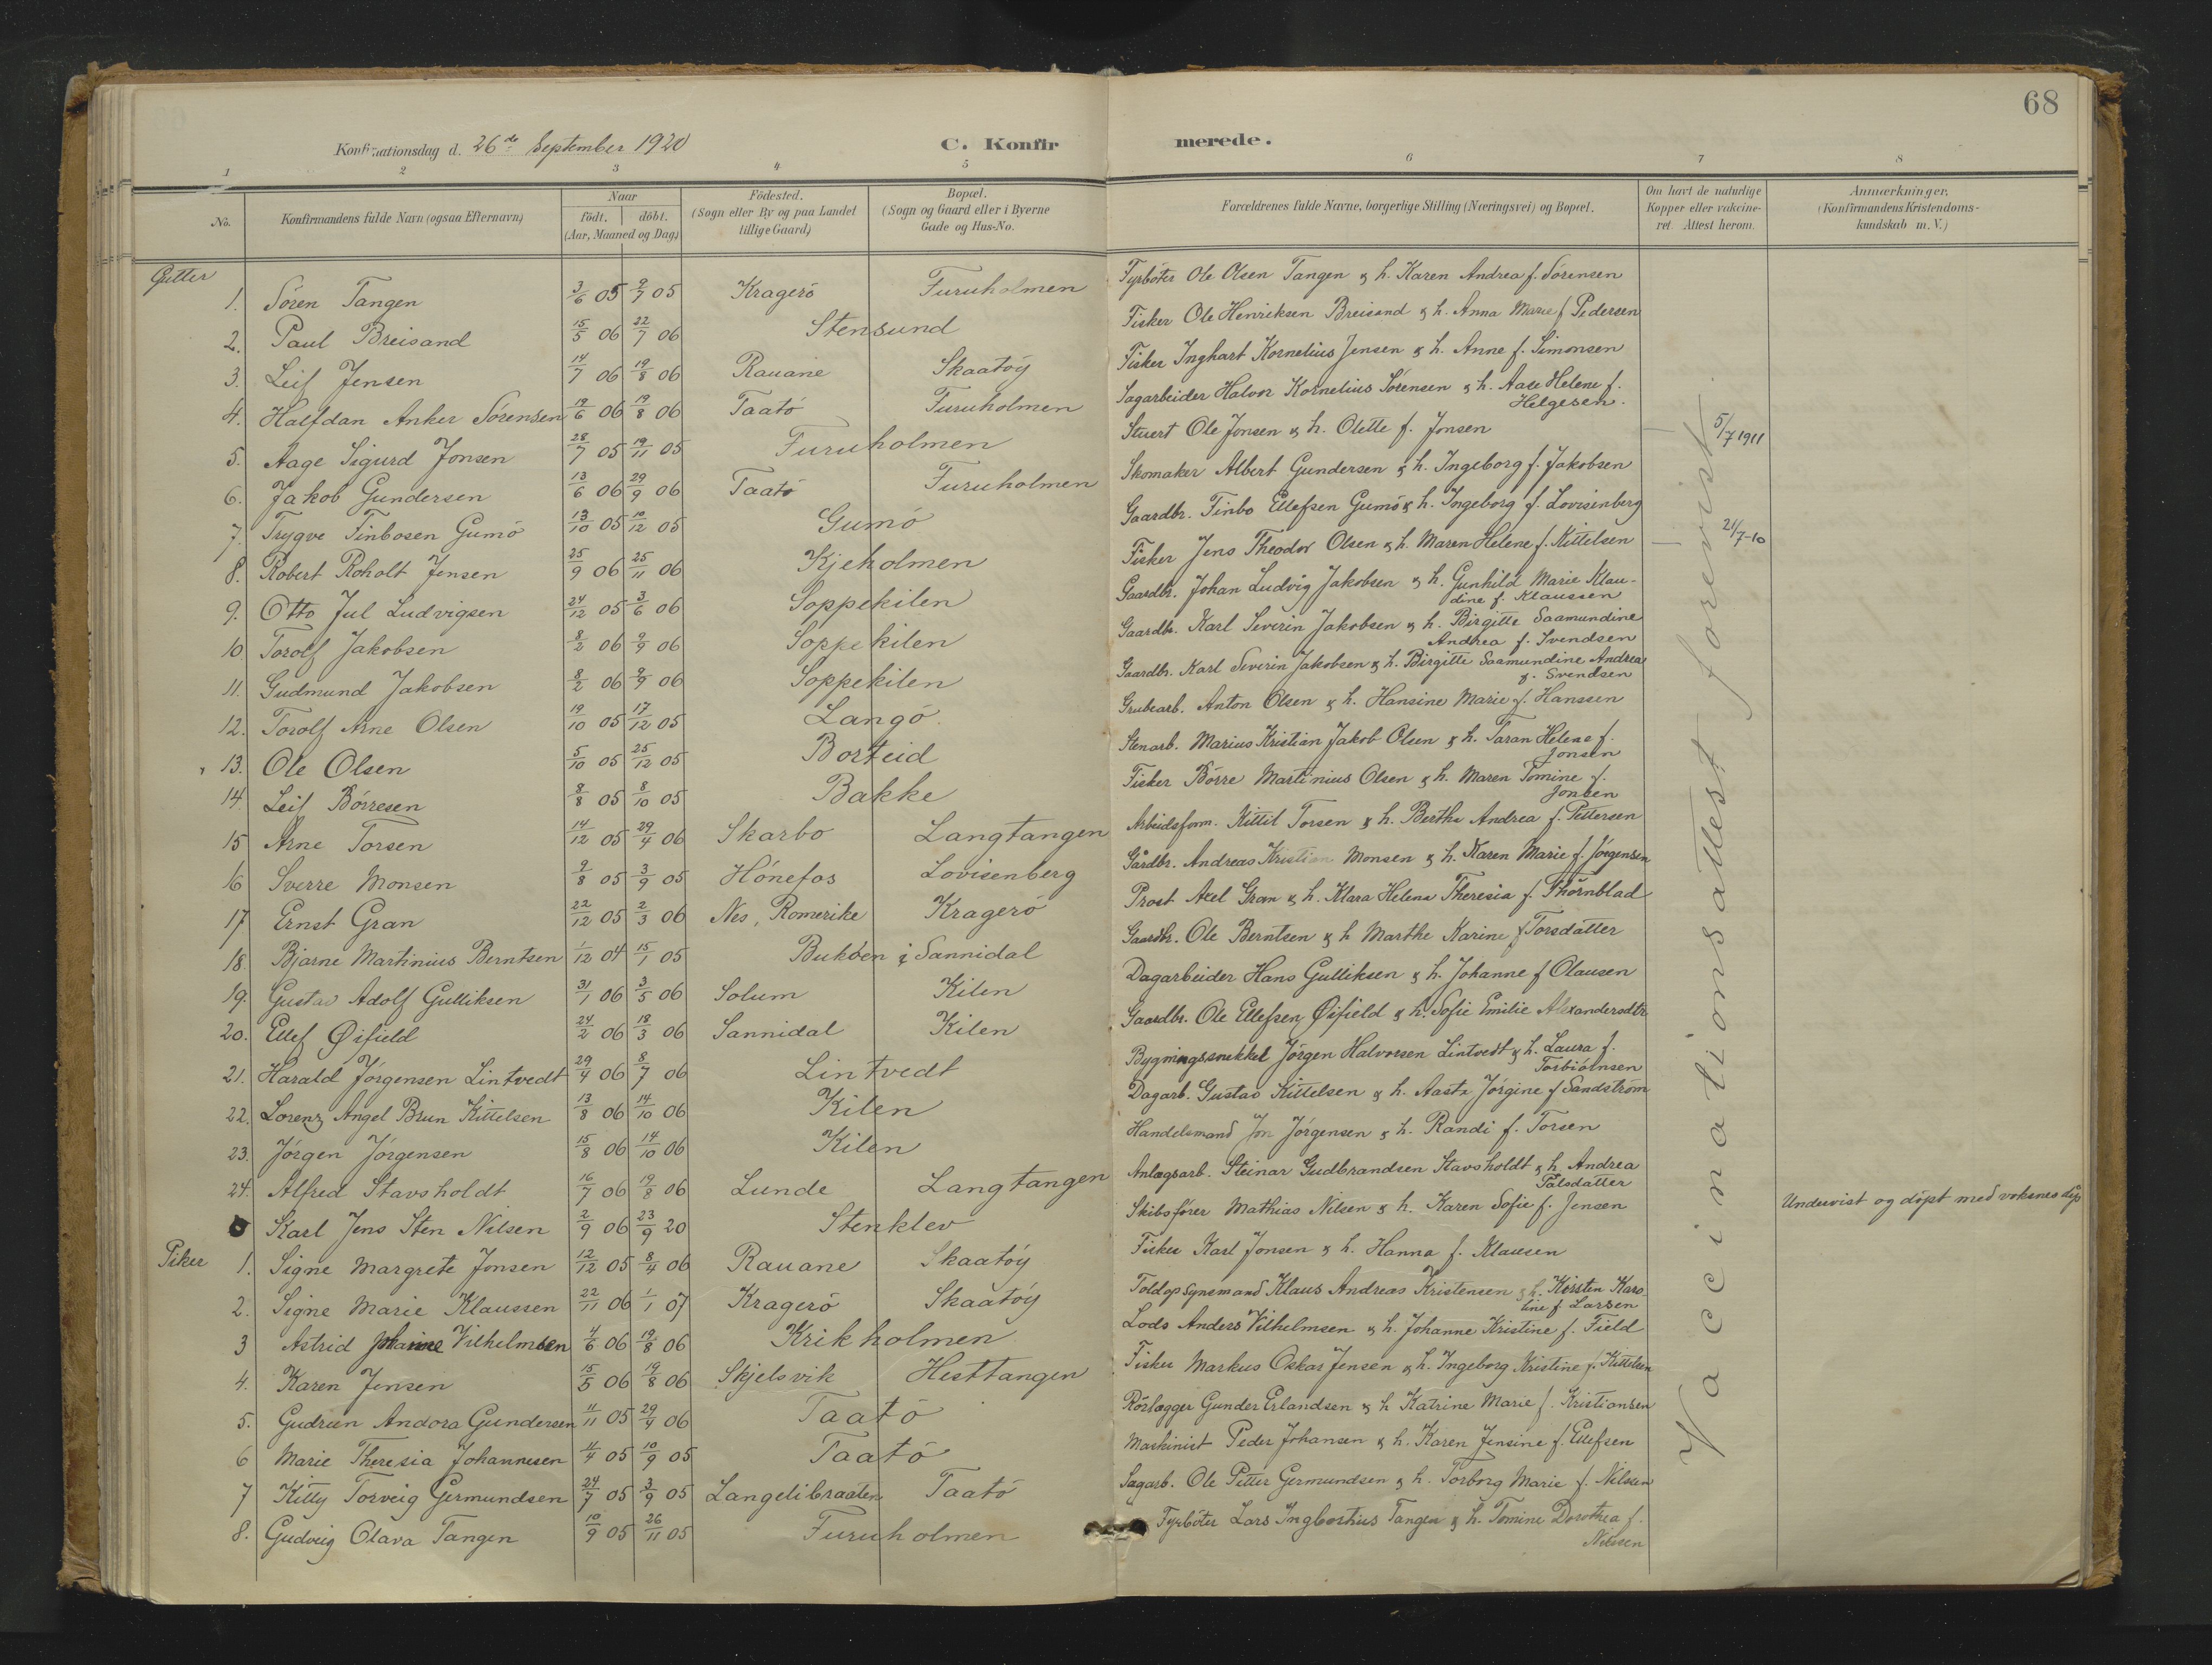 68
Konfirmationsdag d. 26de September 1920
C. Konfirmerede.
1 2 3 4 5 6 7 8
No. Konfirmandens fulde Navn (ogsaa Efternavn) Naar födt. döbt. (Aar, Maaned og Dag) Födested. (Sogn eller By og paa Landet tillige Gaard) Bopæl. (Sogn og Gaard eller i Byerne Gade og Hus-No. Forældrenes fulde Navne, borgerlige Stilling (Næringsvei) og Bopæl. Om havt de naturlige Kopper eller vakcineret. Attest herom. Anmærkninger. (Konfirmandens Kristendomskundskab m. V.)
Gutter
1. Sören Tangen 3/6 05 9/7 05 Kragerö Furuholmen Fyrböter Ole Olsen Tangen & h. Karen Andrea f. Sörensen
2. Paul Breisand 15/5 06 22/7 06 Stensund Fisker Ole Henriksen Breisand & h. Anna Marie f Pedersen
3. Leif Jensen 14/7 06 19/8 06 Rauane Skaatöy Fisker Inghart Kornelius Jensen & h. Anne f. Simonsen
4. Halfdan Anker Sörensen 19/6 06 19/8 06 Taatö Furuholmen Sagarbeider Halvor Kornelius Sörensen & h. Aase Helene f. Helgesen.
5. Aage Sigurd Jonsen 28/7 05 19/11 05 Furuholmen Stuert Ole Jonsen & h. Olette f. Jonsen 5/7 1911
6. Jakob Gundersen 13/6 06 29/9 06 Taatö Furuholmen Skomaker Albert Gundersen & h. Ingeborg f. Jakobsen
7. Trygve Finbosen Gumö 13/10 05 10/12 05 Gumö Gaardbr. Finbo Ellefsen Gumö & h. Ingeborg f. Lovisenberg
8. Robert Roholt Jensen 25/9 06 25/11 06 Kjeholmen Fisker Jens Theodor Olsen & h. Maren Helene f. Kittelsen 21/7-10
9. Otto Jul Ludvigsen 24/12 05 3/6 06 Soppekilen Gaardbr. Johan Ludvig Jakobsen & h. Gunhild Marie Klaudine f. Klaussen
10. Torolf Jakobsen 8/2 06 9/9 06 Soppekilen Gaardbr. Karl Severin Jakobsen & h. Birgitte Saamundine Andrea f. Svendsen
11. Gudmund Jakobsen 8/2 06 9/9 06 Soppekilen Gaardbr. Karl Severin Jakobsen & h. Birgitte Saamundine Andrea f. Svendsen
12. Torolf Arne Olsen 19/10 05 17/12 05 Langö. Grubearb. Anton Olsen & h. Hansine Marie f. Hanssen
13. Ole Olsen 5/10 05 25/12 05 Borteid Stenarb. Marius Kristian Jakob Olsen & h. Taran Helene f. Jonsen
14. Leif Börresen 8/8 05 8/10 05 Bakke Fisker Börre Martinius Olsen & h. Maren Tomine f. Jonsen
15 Arne Torsen 14/12 05 29/4 06 Skarbo Langtangen Arbeidsform. Kittil Torsen & h. Berthe Andrea f. Pettersen
16 Sverre Monsen 9/8 05 3/9 05 Hönefos Lovisenberg Gårdbr. Andreas Kristian Monsen & h. Karen Marie f. Jörgensen
17 Ernst Gran 22/12 05 2/3 06 Nes, Romerike Kragerö Prost Axel Gran & h. Klara Helena Theresia f. Thörnblad
18. Bjarne Martinius Berntsen 1/12 04 15/1 05 Buköen i Sannidal Gaardbr. Ole Berntsen & h Marthe Karine f Torsdatter
19. Gustav Adolf Gulliksen 31/1 06 3/5 06 Solum Kilen Dagarbeider Hans Gulliksen & h. Johanne f Olausen
20. Ellef Øifield 24/2 06 18/3 06 Sannidal Kilen Gaardbr. Ole Ellefsen Øifield & h. Sofie Emilie Alexandersdtr.
21. Harald Jörgensen Lintvedt 29/4 06 8/7 06 Lintvedt Bygningssnekker Jörgen Halvorsen Lintvedt & h. Laura f. Torbiörnsen
22. Lorenz Angel Brun Kittelsen 13/8 06 14/10 06 Kilen Dagarb. Gustav Kittelsen & h. Aasta Jörgine f Sandström
23. Jörgen Jörgensen 15/8 06 14/10 06 Kilen Handelsmand Jon Jörgensen & h. Randi f. Torsen
24. Alfred Stavsholdt 16/7 06 19/8 06 Lunde Langtangen Anlægsarb. Steinar Gudbrandsen Stavsholdt & h. Andrea Palsdatter
Karl Jens Sten Nilsen 2/9 06 23/9 20 Stenklev Skibsförer Mathias Nilsen & h. Karen Sofie f. Jensen Undervist og döpt med voksnes dåp
Piker
1. Signe Margrete Jonsen 12/12 05 8/4 06 Rauane Skaatöy Fisker Karl Jonsen & h. Hanna f. Klausen
2. Signe Marie Klaussen 22/11 06 1/1 07 Kragerö Skaatöy Toldopsynsmand Klaus Andreas Kristensen & h. Kirsten Karoline f. Larsen
3 Astrid Johanne Vilhelmsen 4/6 06 19/8 06 Krikholmen Lods Anders Vilhelmsen & h. Johanne Kristine f. Field
4. Karen Jensen 15/5 06 19/8 06 Skjelsvik Hesttangen Fisker Markus Oskar Jensen & h. Ingeborg Kristine f. Kittelsen
5. Gudrun Andora Gundersen 11/11 05 29/4 06 Taatö Rörlægger Gunder Erlandsen & h Katrine Marie f. Kristiansen
6 Marie Theresia Johannesen 4/4 05 10/9 05 Taatö Maskinist Peder Johansen & h. Karen Jensine f. Ellefsen
7 Kitty Torveig Germundsen 24/7 05 3/9 05 Langelibraaten Taatö Sagarb. Ole Petter Germundsen & h. Torborg Marie f. Nilsen
8. Gudveig Olava Tangen 10/9 05 26/11 05 Furuholmen Fyrböter Lars Ingbortius Tangen & h. Tomine Dorothea f. Nilssen
Vaccinationsattest forevist.